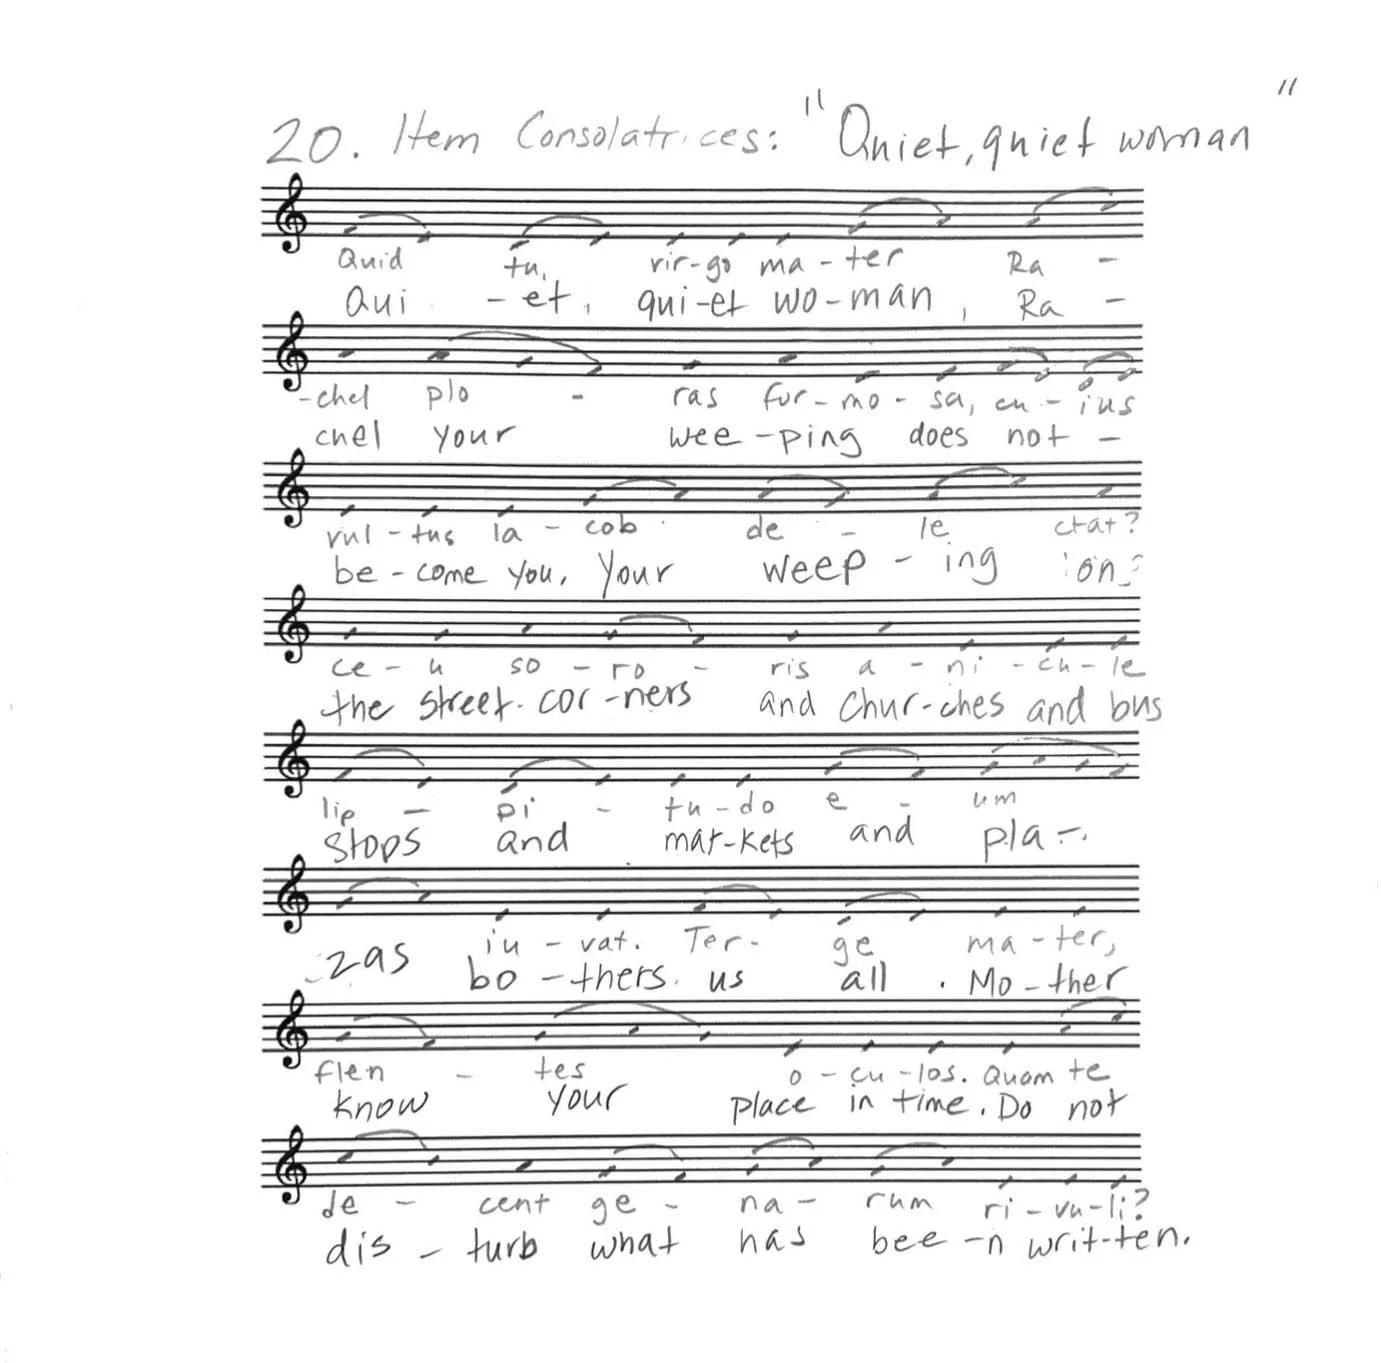 20. Item Consolatrices: "Quiet, quiet woman"
Quid tu, vir-go ma-ter Ra -
Qui - et, qui-et wo-man, Ra -
-chel plo - ras for-mo-sa, cu-ius
chel your wee-ping does not -
vul-tus Ia-cob de - le ctat?
be-come you, your weep-ing on
ce-u so-ro-ris a-ni-cu-le
the street cor-ners and chur-ches and bus
lip - pi - tu-do e - um
stops and mar-kets and pla-
iu-vat. Ter-ge ma-ter,
zas bo-thers us all. Mo-ther
flen - tes o-cu-los. Quam te
know your place in time. Do not
de - cent ge - na - rum ri-vu-li?
dis - turb what has bee-n writ-ten.